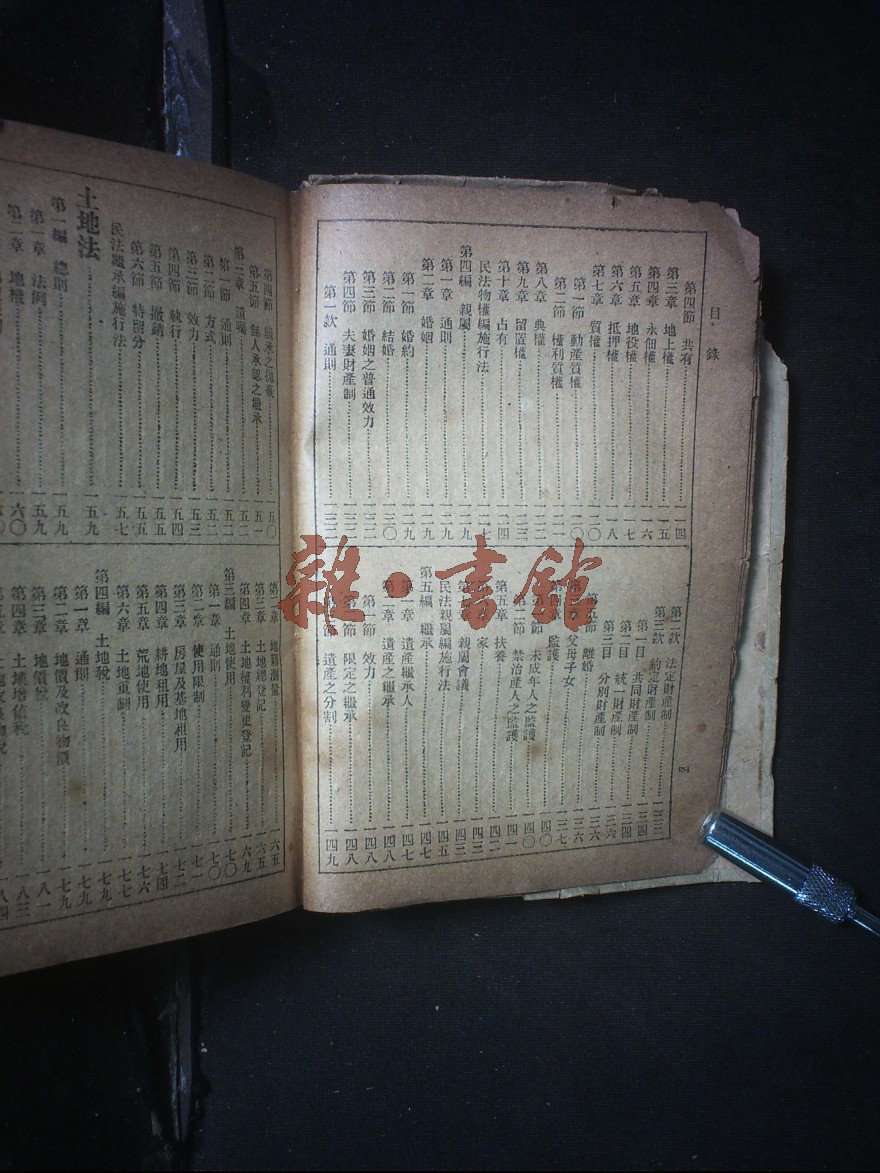 目錄
第四節 共有 一一四
第三章 地上權 一一五
第四章 永佃權 一一六
第五章 地役權 一一七
第六章 抵押權 一一八
第七章 質權 一二〇
第一節 動產質權 一二〇
第二節 權利質權 一二一
第八章 典權 一二二
第九章 留置權 一二三
第十章 占有 一二四
民法物權編施行法 一二七
第四編 親屬 一二九
第一章 通則 一二九
第二章 婚姻 一二九
第一節 婚約 一二九
第二節 結婚 一三〇
第三節 婚姻之普通效力 一三二
第四節 夫妻財產制 一三二
第一款 通則 一三二
第二款 法定財產制 一三三
第三款 約定財產制 一三三
第一目 共同財產制 一三四
第二目 統一財產制
第三目 分別財產制 一三六
第五節 離婚 一三六
父母子女 一三七
監護 一四〇
未成年人之監護 一四〇
第二節 禁治產人之監護 一四一
第五章 扶養 一四二
家 一四三
親屬會議 一四三
民法親屬編施行法 一四五
第五編 繼承 一四七
第一章 遺產繼承人 一四七
第二章 遺產之繼承 一四八
第一節 效力 一四八
限定之繼承 一四八
遺產之分割 一四九
第四節 一五〇
第五節 無人承認之繼承 一五一
第三章 遺囑 一五二
第一節 通則 一五二
第二節 方式 一五二
第三節 效力 一五三
第四節 執行 一五四
第五節 撤銷 一五五
第六節 特留分 一五五
民法繼承編施行法 一五七
土地法 一五九
第一編 總則 一五九
第一章 法例 一五九
第二章 地權 一六〇
地籍測量 一六五
第三章 土地總登記 一六五
第四章 土地權利變更登記 一六九
第三編 土地使用 一七〇
第一章 通則 一七〇
第二章 使用限制 一七一
第三章 房屋及基地租用 一七二
第四章 耕地租用 一七四
第五章 荒地使用 一七六
第六章 土地重劃 一七七
第四編 土地稅 一七九
第一章 通則 一七九
第二章 地價及改良物價 一七九
第三章 地價稅 一八一
第四章 土地增值稅 一八三
雜·書館